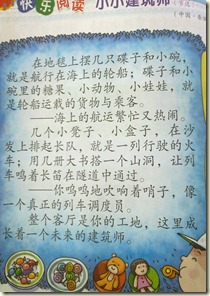 快乐阅读 小小建筑师
在地毯上摆几只碟子和小碗，
就是航行在海上的轮船；碟子和小
碗里的糖果、小动物、小娃娃，就
是轮船运载的货物与乘客。
——海上的航运繁忙又热闹。
几个小凳子、小盒子，在沙
发上排起长队，就是一列行驶的火
车；用几册大书搭一个山洞，让列
车鸣着长笛在隧道中通过。
——你呜呜地吹响着哨子，像
一个真正的列车调度员。
整个客厅是你的工地，这里成
长着一个未来的建筑师。